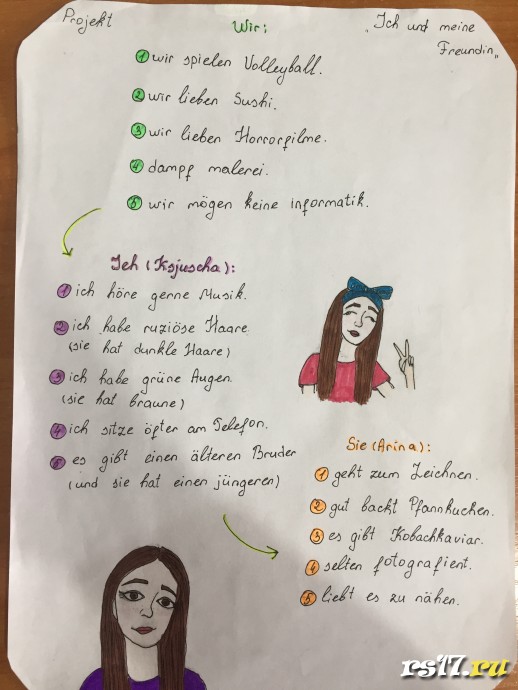 Projekt
"Ich und meine
Freundin"
Wir:
1 wir spielen Volleyball.
2 wir lieben Sushi.
3 wir lieben Horrorfilme.
4 dampf malerei.
5 wir mögen keine informatik.
Ich (Ksjuscha):
1 ich höre gerne Musik.
2 ich habe ruziöse Haare
(sie hat dunkle Haare)
3 ich habe grüne Augen.
(sie hat braune)
4 ich sitze öfter am Telefon.
5 es gibt einen älteren Bruder
(und sie hat einen jüngeren)
Sie (Arina):
1 geht zum Zeichnen.
2 gut backt Pfannkuchen.
3 es gibt Kobachkaviar.
4 selten fotografient.
5 liebt es zu nähen.
rs17.ru